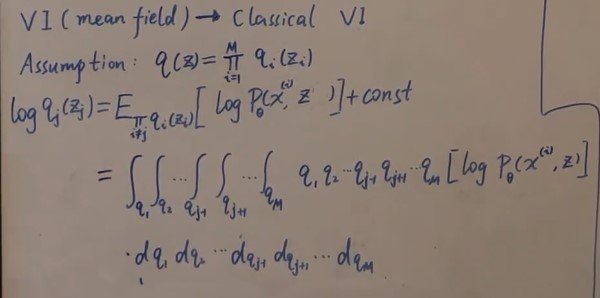 VI (mean field) → Classical VI
Assumption: q(z) = ∏_{i=1}^{M} q_i(z_i)
log q_j(z_j) = E_{∏_{i≠j} q_i(z_i)} [ log P_θ(x^{(i)}, z) ] + const
= ∫_{q_1} ∫_{q_2} ⋯ ∫_{q_{j-1}} ∫_{q_{j+1}} ⋯ ∫_{q_M} q_1 q_2 ⋯ q_{j-1} q_{j+1} ⋯ q_M [ log P_θ(x^{(i)}, z) ]
· dq_1 dq_2 ⋯ dq_{j-1} dq_{j+1} ⋯ dq_M